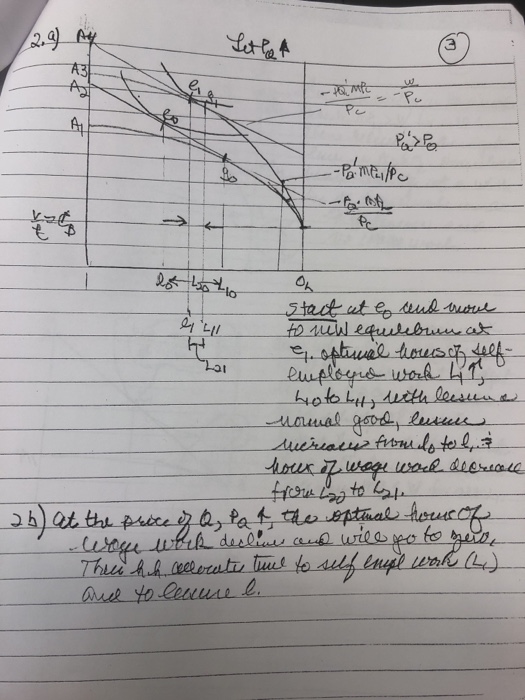 2.a) A4 Let Pa ↑ (3)
A3
A2
A1
e1 g1
e0
g0
Pc = - w/Pc
Pa' > Pa
- Pa' MPL1/Pc
Pc
l0 L20 L10 Oh
l1 L11
L21
Start at e0 and move
to new equilibrium at
e1. optimal hours of self-
employed work L1↑,
L10 to L11, with leisure a
normal good, leisure
increases from l0 to l1, &
hours of wage work decrease
from L20 to L21.
2b) At the price of Q, Pa ↑, the optimal hours of
wage work decline and will go to zero.
Then h.h allocate time to self empl work (L1)
and to leisure l.